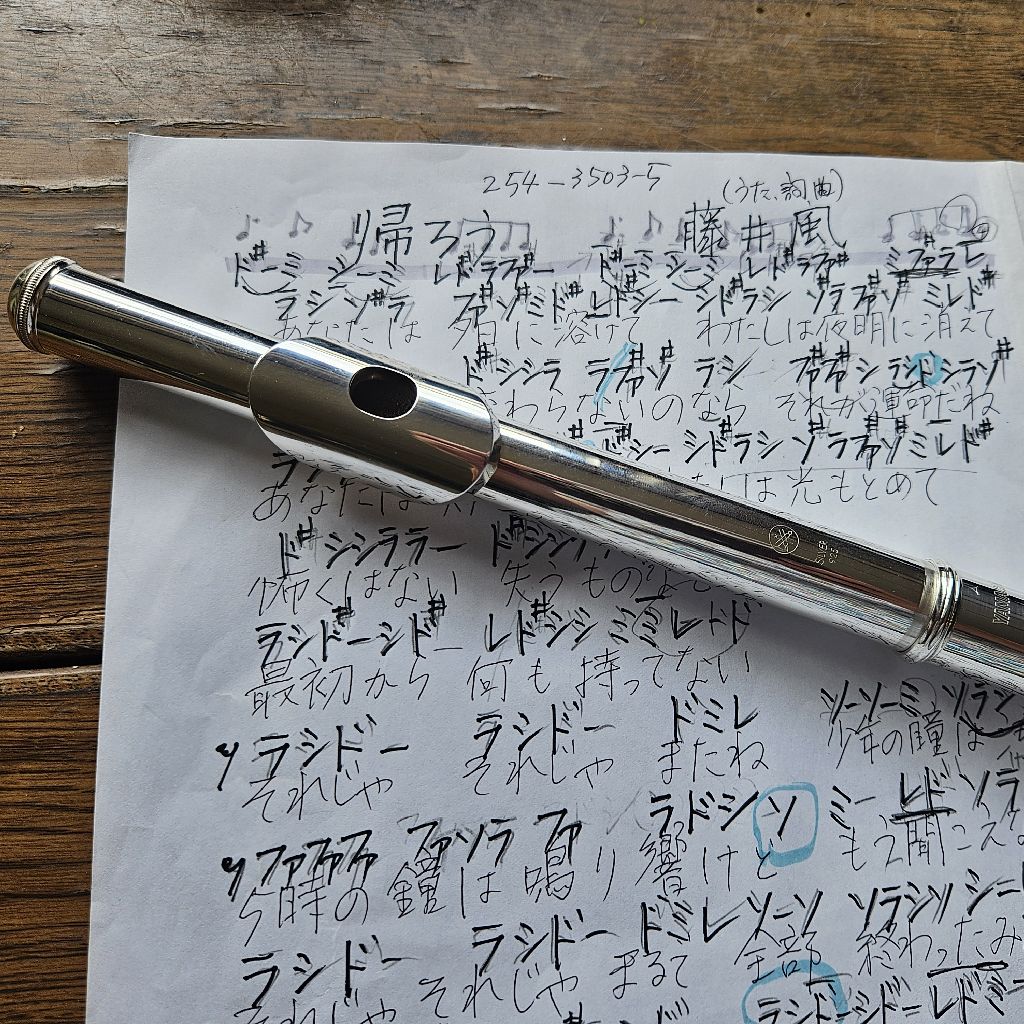 254-3503-5
(うた、詞曲)
帰ろう 藤井風
ド#ーミ シーミ レド#ラファ#ー ド#ーミシーミ レド#ラファ# ミファ#ラレ
ラシソ#ラ ファ#ソ#ミド# レド#シー シド#ラシ ソ#ラファ#ソ# ミレド#
あなたは 夕日に溶けて わたしは夜明に消えて
ド#シシラ ラファ#ソ ラシ ファ#ファ#シラシド#シラソ#
わらないのなら それが運命だね
シー シド#ラシ ソ#ラファ#ソ#ミレド#
あなたは は光もとめて
ド#シシララー ド#シシ
怖くはない 失うもの
ラシド#ーシド# レド#シシ ミミレドド
最初から 何も持ってない
ラシドー ラシドー ドミレ ソーソーミソラシ
それじゃ それじゃ またね 少年の瞳は
ファファファ ファソラファ ラドシソ ミー レドソラ
5時の鐘は鳴り響けど もう聞こえ
ラシドー ラシドー ドミレソーソ ソラシソシー
それじゃ それじゃ まるで 全部 終わったみ
ラシドーシドー レドミー